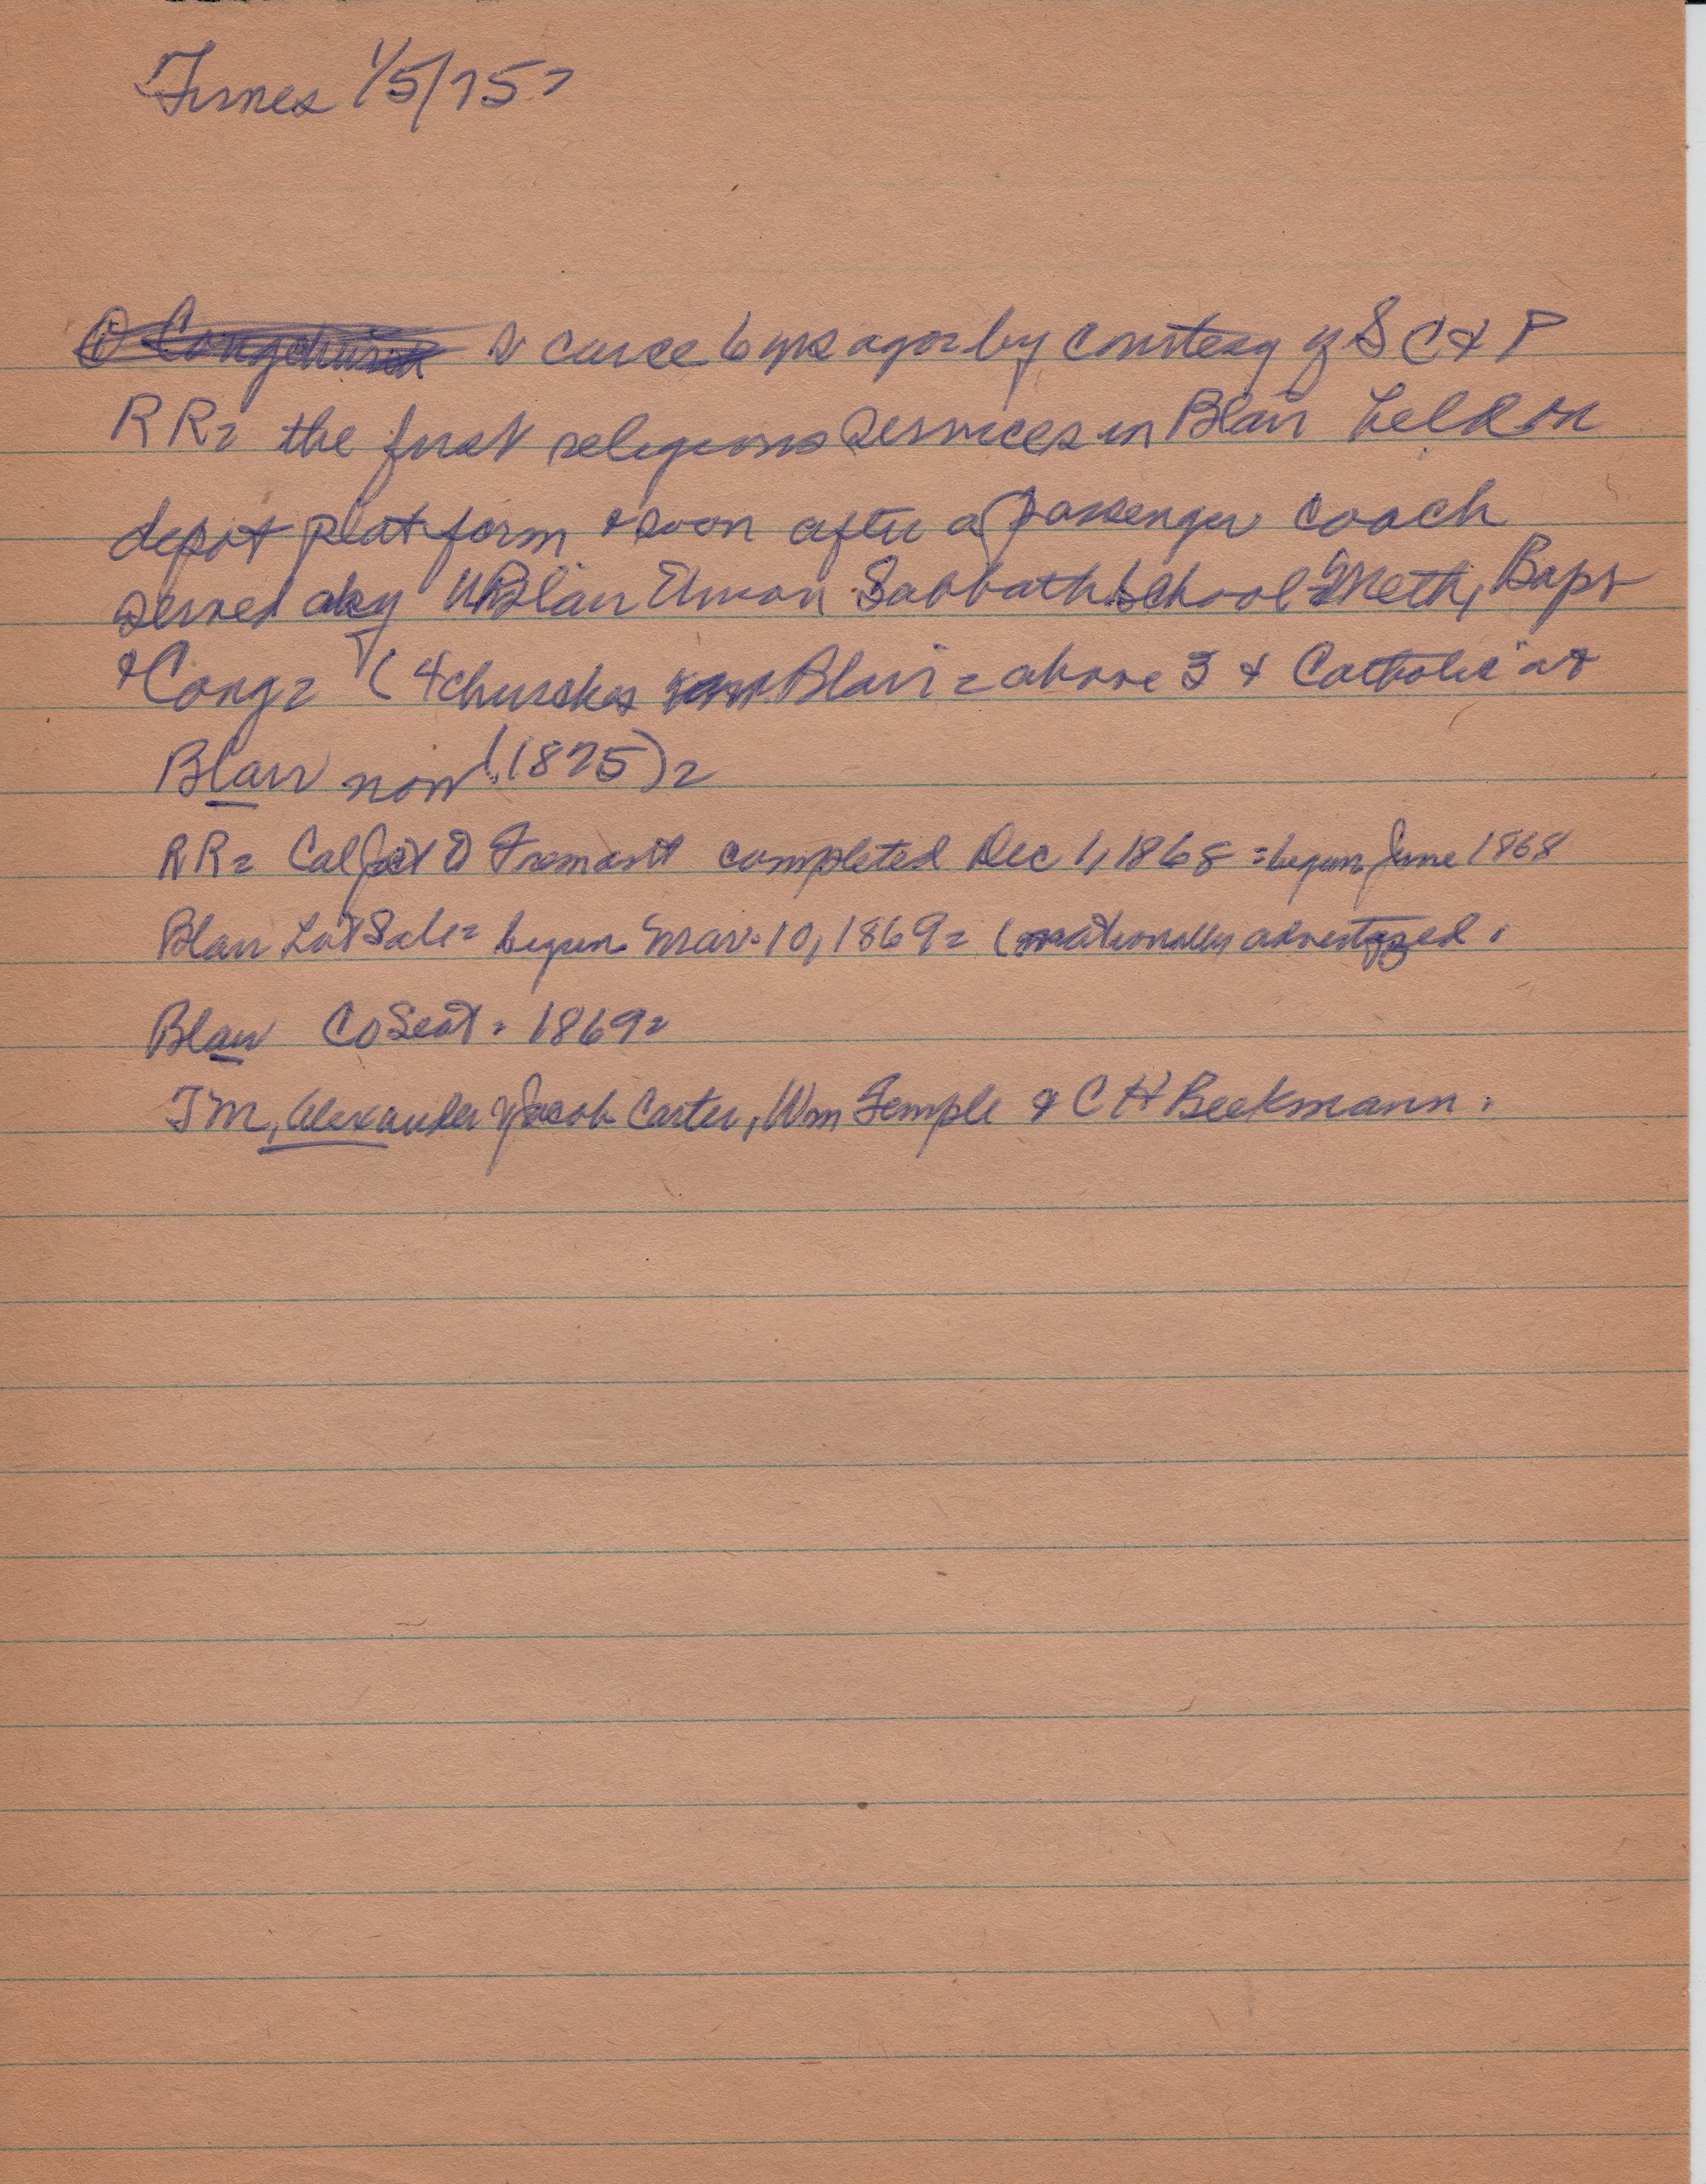 Times 1/5/75 =
Scarce 6 yrs ago = by courtesy of S C & P
RR = the first religious services in Blair held on
depot platform & soon after a passenger coach
served by Blair Union Sabbath School = Meth, Bapt
& Cong = (4 churches Blair = above 3 & Catholic at
Blair now (1875) =
RR = Cal Jct to Fremont completed Dec 1, 1868 = begun June 1868
Blair Lot Sale = begun Mar. 10, 1869 = (nationally advertized.
Blair Co Seat = 1869 =
T M, Alexander, Jacob Carter, Wm Temple & C H Beekmann.